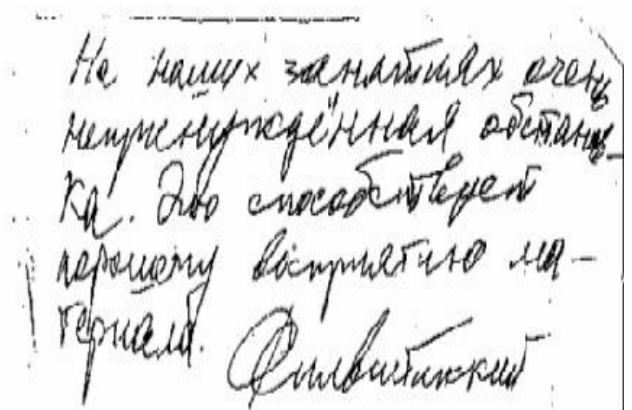 На наших занятиях очень
непренуждённая обстанов-
ка. Это способствует
хорошему восприятию ма-
териала.